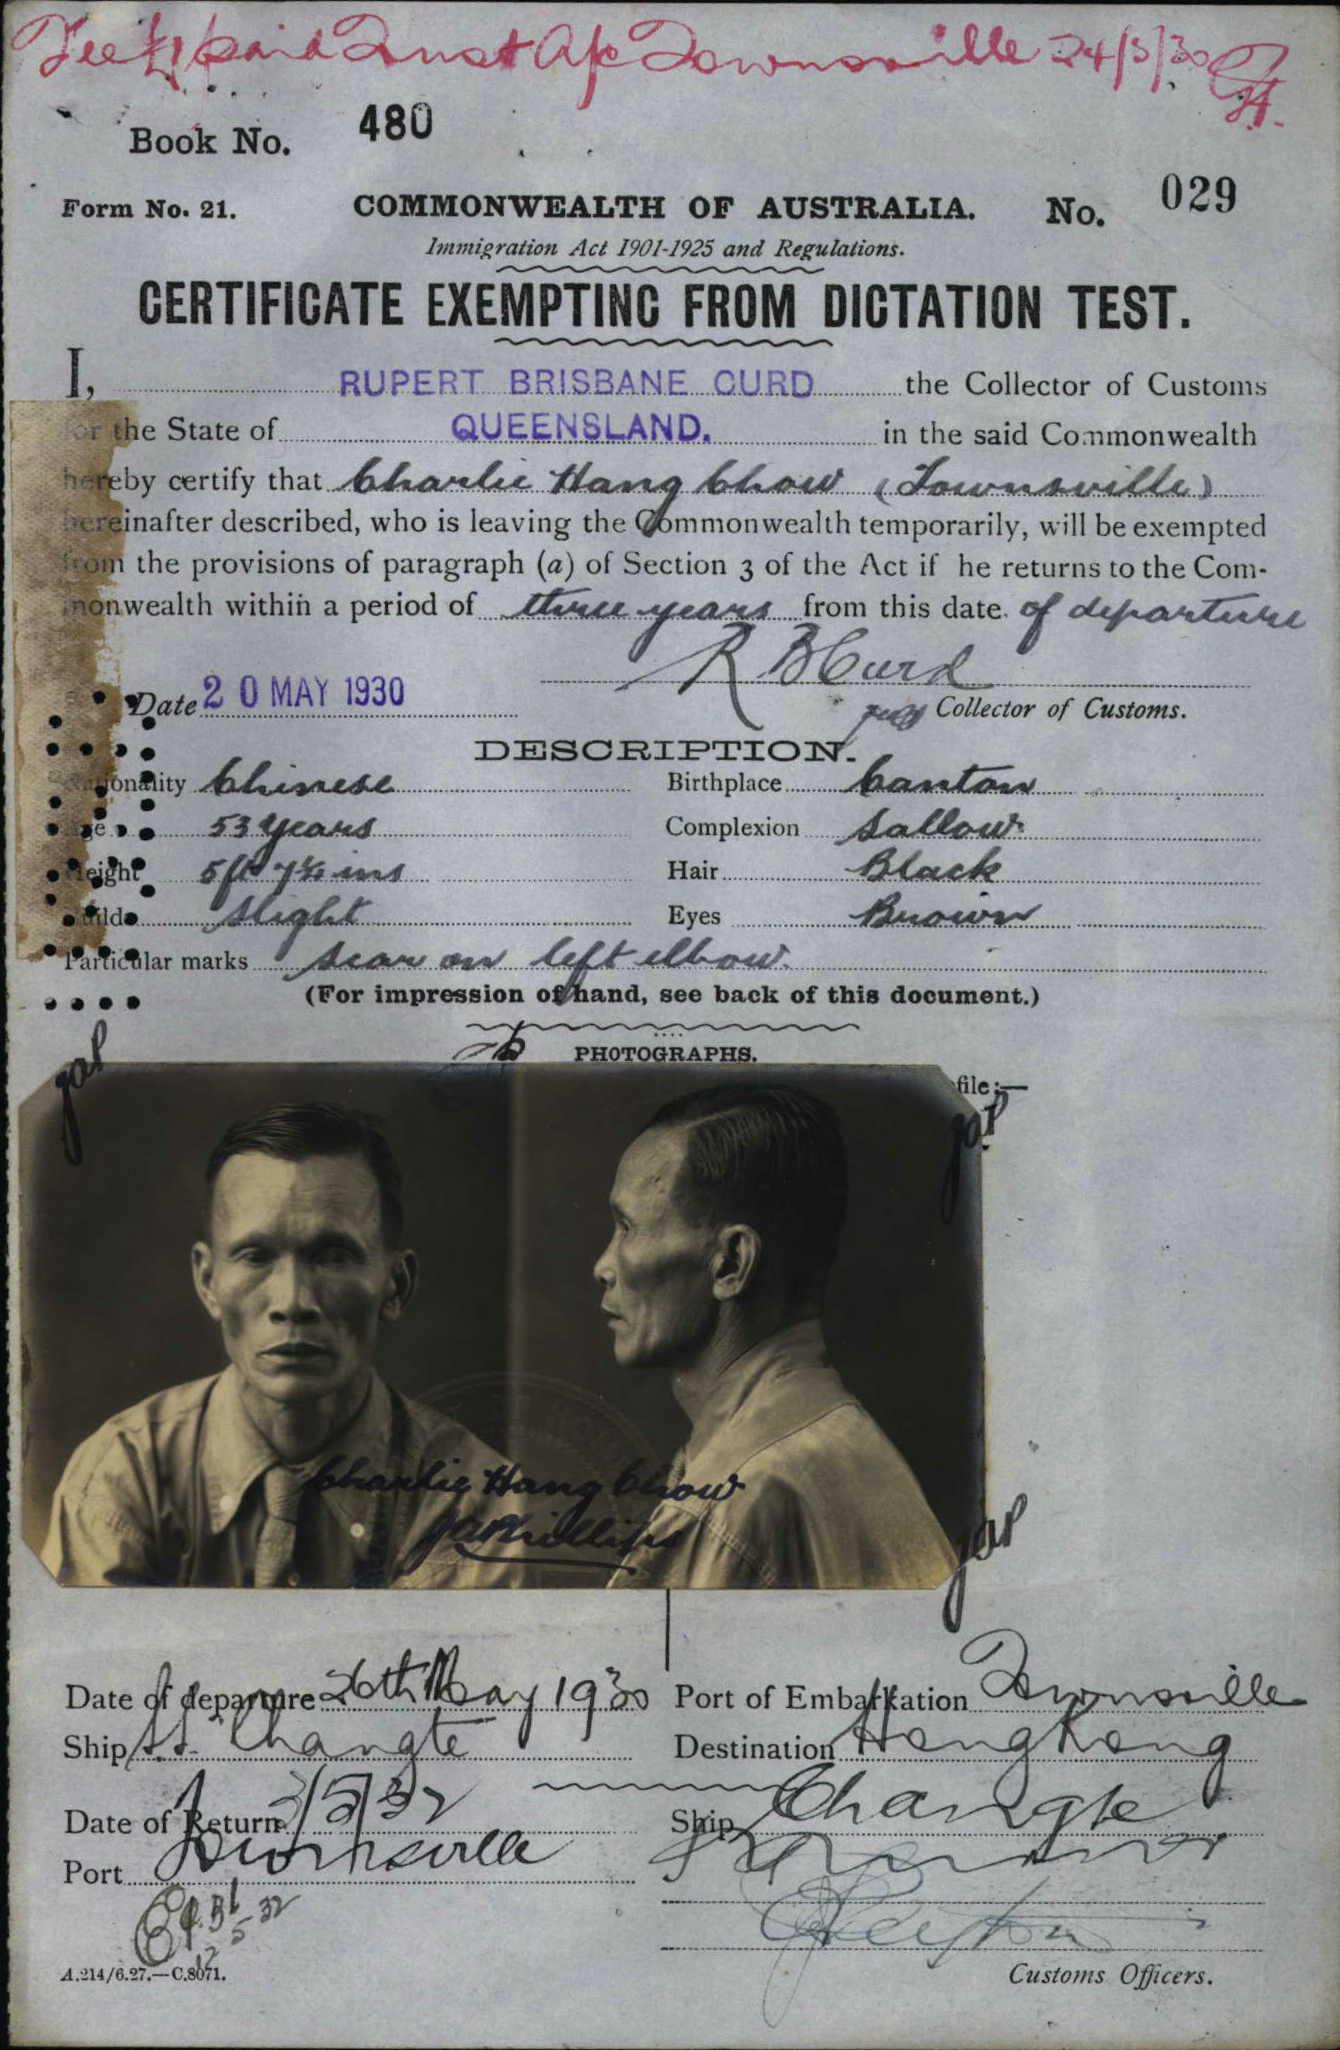 Fee £1 paid Trust A/c Townsville 24/5/30
Book No. 480
Form No. 21. COMMONWEALTH OF AUSTRALIA. No. 029
Immigration Act 1901-1925 and Regulations.
CERTIFICATE EXEMPTING FROM DICTATION TEST.
I, RUPERT BRISBANE CURD the Collector of Customs
for the State of QUEENSLAND. in the said Commonwealth
hereby certify that Charlie Hang Chow (Townsville)
hereinafter described, who is leaving the Commonwealth temporarily, will be exempted
from the provisions of paragraph (a) of Section 3 of the Act if he returns to the Com-
monwealth within a period of three years from this date of departure
R B Curd
Date 20 MAY 1930 Collector of Customs.
DESCRIPTION.
Nationality Chinese Birthplace Canton
Age 53 years Complexion Sallow
Height 5 ft 7¼ ins Hair Black
Build slight Eyes Brown
Particular marks scar on left elbow.
(For impression of hand, see back of this document.)
PHOTOGRAPHS.
jap file:—
jap
Charlie Hang Chow
JAPhillips
jap
Date of departure 26th May 1930 Port of Embarkation Townsville
Ship S.S. Changte Destination Hong Kong
Date of Return 3/5/32 Ship Changte
Port Townsville
Customs Officers.
A.214/6.27.—C.8071.